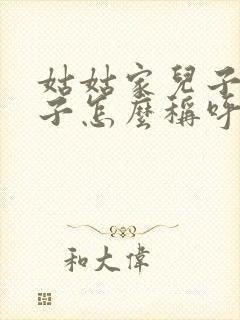 姑姑家兒子
子怎麼稱呼
和大偉